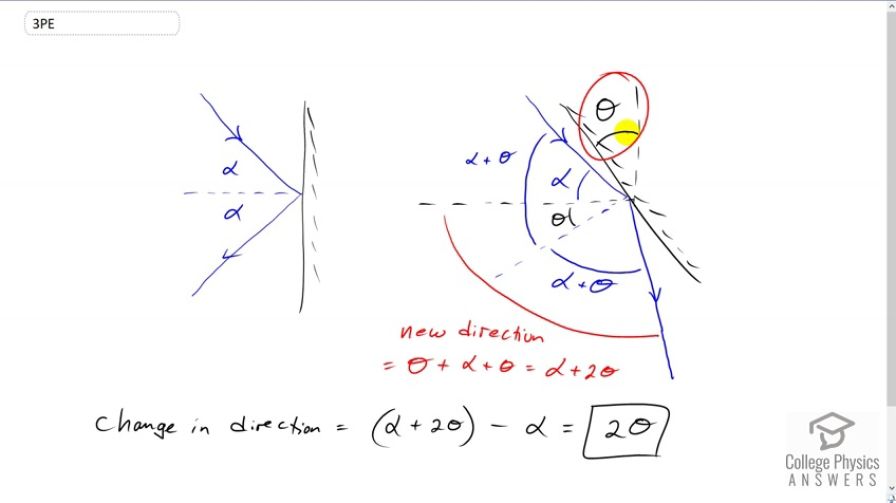 3PE
θ
α + θ
α
α
α
θ
α + θ
new direction
= θ + α + θ = α + 2θ
Change in direction = (α + 2θ) - α = 2θ
College Physics
ANSWERS